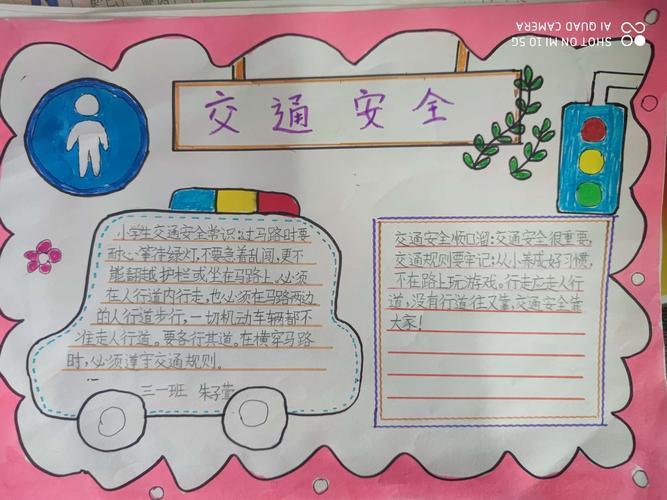 SHOT ON MI 10 5G
AI QUAD CAMERA
交通安全
小学生交通安全常识:过马路时要
耐心等待绿灯,不要急着乱闯,更不
能翻越护栏或坐在马路上。必须
在人行道内行走,也必须在马路两边
的人行道步行,一切机动车辆都不
准走人行道。要各行其道。在横穿马路
时,必须遵守交通规则。
三一班 朱子萱
交通安全顺口溜:交通安全很重要,
交通规则要牢记;从小养成好习惯,
不在路上玩游戏。行走应走人行
道,没有行道往又靠,交通安全靠
大家!